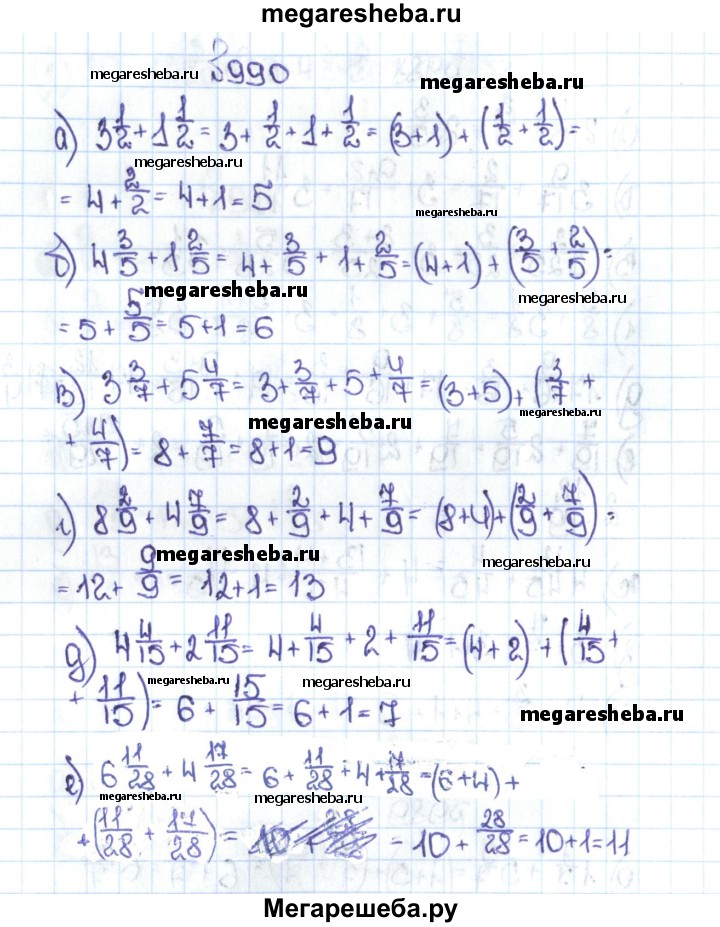 megaresheba.ru
№990
megaresheba.ru
megaresheba.ru
а) 3 1/2 + 1 1/2 = 3 + 1/2 + 1 + 1/2 = (3+1) + (1/2 + 1/2) =
megaresheba.ru
= 4 + 2/2 = 4+1=5
megaresheba.ru
б) 4 3/5 + 1 2/5 = 4 + 3/5 + 1 + 2/5 = (4+1) + (3/5 + 2/5) =
megaresheba.ru
megaresheba.ru
= 5 + 5/5 = 5+1=6
в) 3 3/7 + 5 4/7 = 3 + 3/7 + 5 + 4/7 = (3+5) + (3/7 +
megaresheba.ru
megaresheba.ru
+ 4/7) = 8 + 7/7 = 8+1=9
г) 8 2/9 + 4 7/9 = 8 + 2/9 + 4 + 7/9 = (8+4) + (2/9 + 7/9) =
megaresheba.ru
megaresheba.ru
= 12 + 9/9 = 12+1=13
д) 4 4/15 + 2 11/15 = 4 + 4/15 + 2 + 11/15 = (4+2) + (4/15 +
megaresheba.ru
megaresheba.ru
+ 11/15) = 6 + 15/15 = 6+1=7
megaresheba.ru
е) 6 11/28 + 4 17/28 = 6 + 11/28 + 4 + 17/28 = (6+4) +
megaresheba.ru
megaresheba.ru
+ (11/28 + 17/28) = = 10 + 28/28 = 10+1=11
Мегарешеба.ру